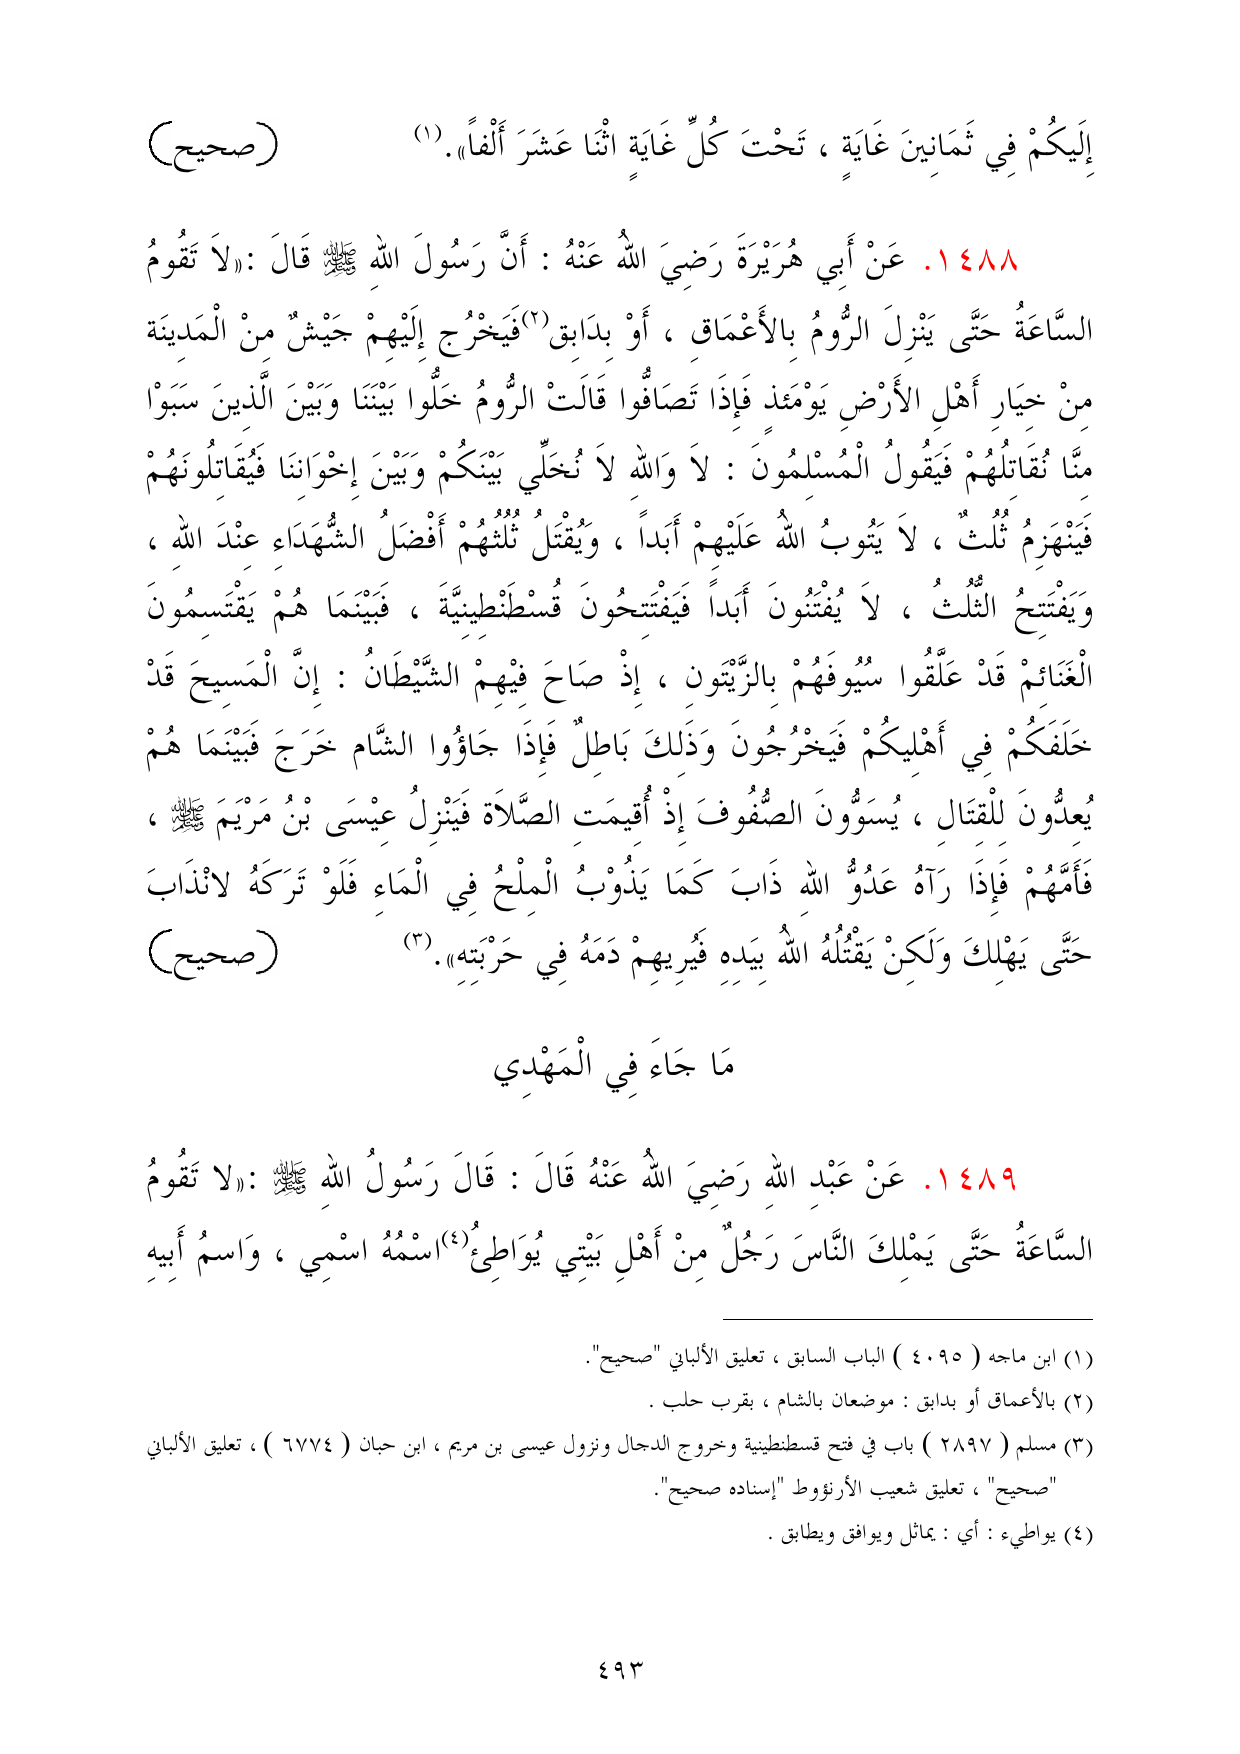 إِلَيكُمْ فِي ثَمَانِينَ غَايَةٍ ، تَحْتَ كُلِّ غَايَةٍ اثْنَا عَشَرَ أَلْفاً».(١) (صحيح)
١٤٨٨. عَنْ أَبِي هُرَيْرَةَ رَضِيَ اللهُ عَنْهُ : أَنَّ رَسُولَ اللهِ ﷺ قَالَ :«لاَ تَقُومُ
السَّاعَةُ حَتَّى يَنْزِلَ الرُّومُ بِالأَعْمَاقِ ، أَوْ بِدَابِق(٢)فَيَخْرُج إِلَيْهِمْ جَيْشٌ مِنْ الْمَدِينَة
مِنْ خِيَارِ أَهْلِ الأَرْضِ يَوْمَئذٍ فَإِذَا تَصَافُّوا قَالَتْ الرُّومُ خَلُّوا بَيْنَنَا وَبَيْنَ الَّذِينَ سَبَوْا
مِنَّا نُقَاتِلُهُمْ فَيَقُولُ الْمُسْلِمُونَ : لاَ وَاللهِ لاَ نُخَلِّي بَيْنَكُمْ وَبَيْنَ إِخْوَانِنَا فَيُقَاتِلُونَهُمْ
فَيَنْهَزِمُ ثُلُثٌ ، لاَ يَتُوبُ اللهُ عَلَيْهِمْ أَبَداً ، وَيُقْتَلُ ثُلُثُهُمْ أَفْضَلُ الشُّهَدَاءِ عِنْدَ اللهِ ،
وَيَفْتَتِحُ الثُّلُثُ ، لاَ يُفْتَنُونَ أَبَداً فَيَفْتَتِحُونَ قُسْطَنْطِينِيَّةَ ، فَبَيْنَمَا هُمْ يَقْتَسِمُونَ
الْغَنَائِمْ قَدْ عَلَّقُوا سُيُوفَهُمْ بِالزَّيْتَونِ ، إِذْ صَاحَ فِيْهِمْ الشَّيْطَانُ : إِنَّ الْمَسِيحَ قَدْ
خَلَفَكُمْ فِي أَهْلِيكُمْ فَيَخْرُجُونَ وَذَلِكَ بَاطِلٌ فَإِذَا جَاؤُوا الشَّام خَرَجَ فَبَيْنَمَا هُمْ
يُعِدُّونَ لِلْقِتَالِ ، يُسَوُّونَ الصُّفُوفَ إِذْ أُقِيمَتِ الصَّلاَة فَيَنْزِلُ عِيْسَى بْنُ مَرْيَمَ ﷺ ،
فَأَمَّهُمْ فَإِذَا رَآهُ عَدُوُّ اللهِ ذَابَ كَمَا يَذُوْبُ الْمِلْحُ فِي الْمَاءِ فَلَوْ تَرَكَهُ لانْذَابَ
حَتَّى يَهْلِكَ وَلَكِنْ يَقْتُلُهُ اللهُ بِيَدِهِ فَيُرِيهِمْ دَمَهُ فِي حَرْبَتِهِ».(٣) (صحيح)
مَا جَاءَ فِي الْمَهْدِي
١٤٨٩. عَنْ عَبْدِ اللهِ رَضِيَ اللهُ عَنْهُ قَالَ : قَالَ رَسُولُ اللهِ ﷺ :«لا تَقُومُ
السَّاعَةُ حَتَّى يَمْلِكَ النَّاسَ رَجُلٌ مِنْ أَهْلِ بَيْتِي يُوَاطِئُ(٤)اسْمُهُ اسْمِي ، وَاسمُ أَبِيهِ
(١) ابن ماجه ( ٤٠٩٥ ) الباب السابق ، تعليق الألباني "صحيح".
(٢) بالأعماق أو بدابق : موضعان بالشام ، بقرب حلب .
(٣) مسلم ( ٢٨٩٧ ) باب في فتح قسطنطينية وخروج الدجال ونزول عيسى بن مريم ، ابن حبان ( ٦٧٧٤ ) ، تعليق الألباني
"صحيح" ، تعليق شعيب الأرنؤوط "إسناده صحيح".
(٤) يواطيء : أي : يماثل ويوافق ويطابق .
٤٩٣